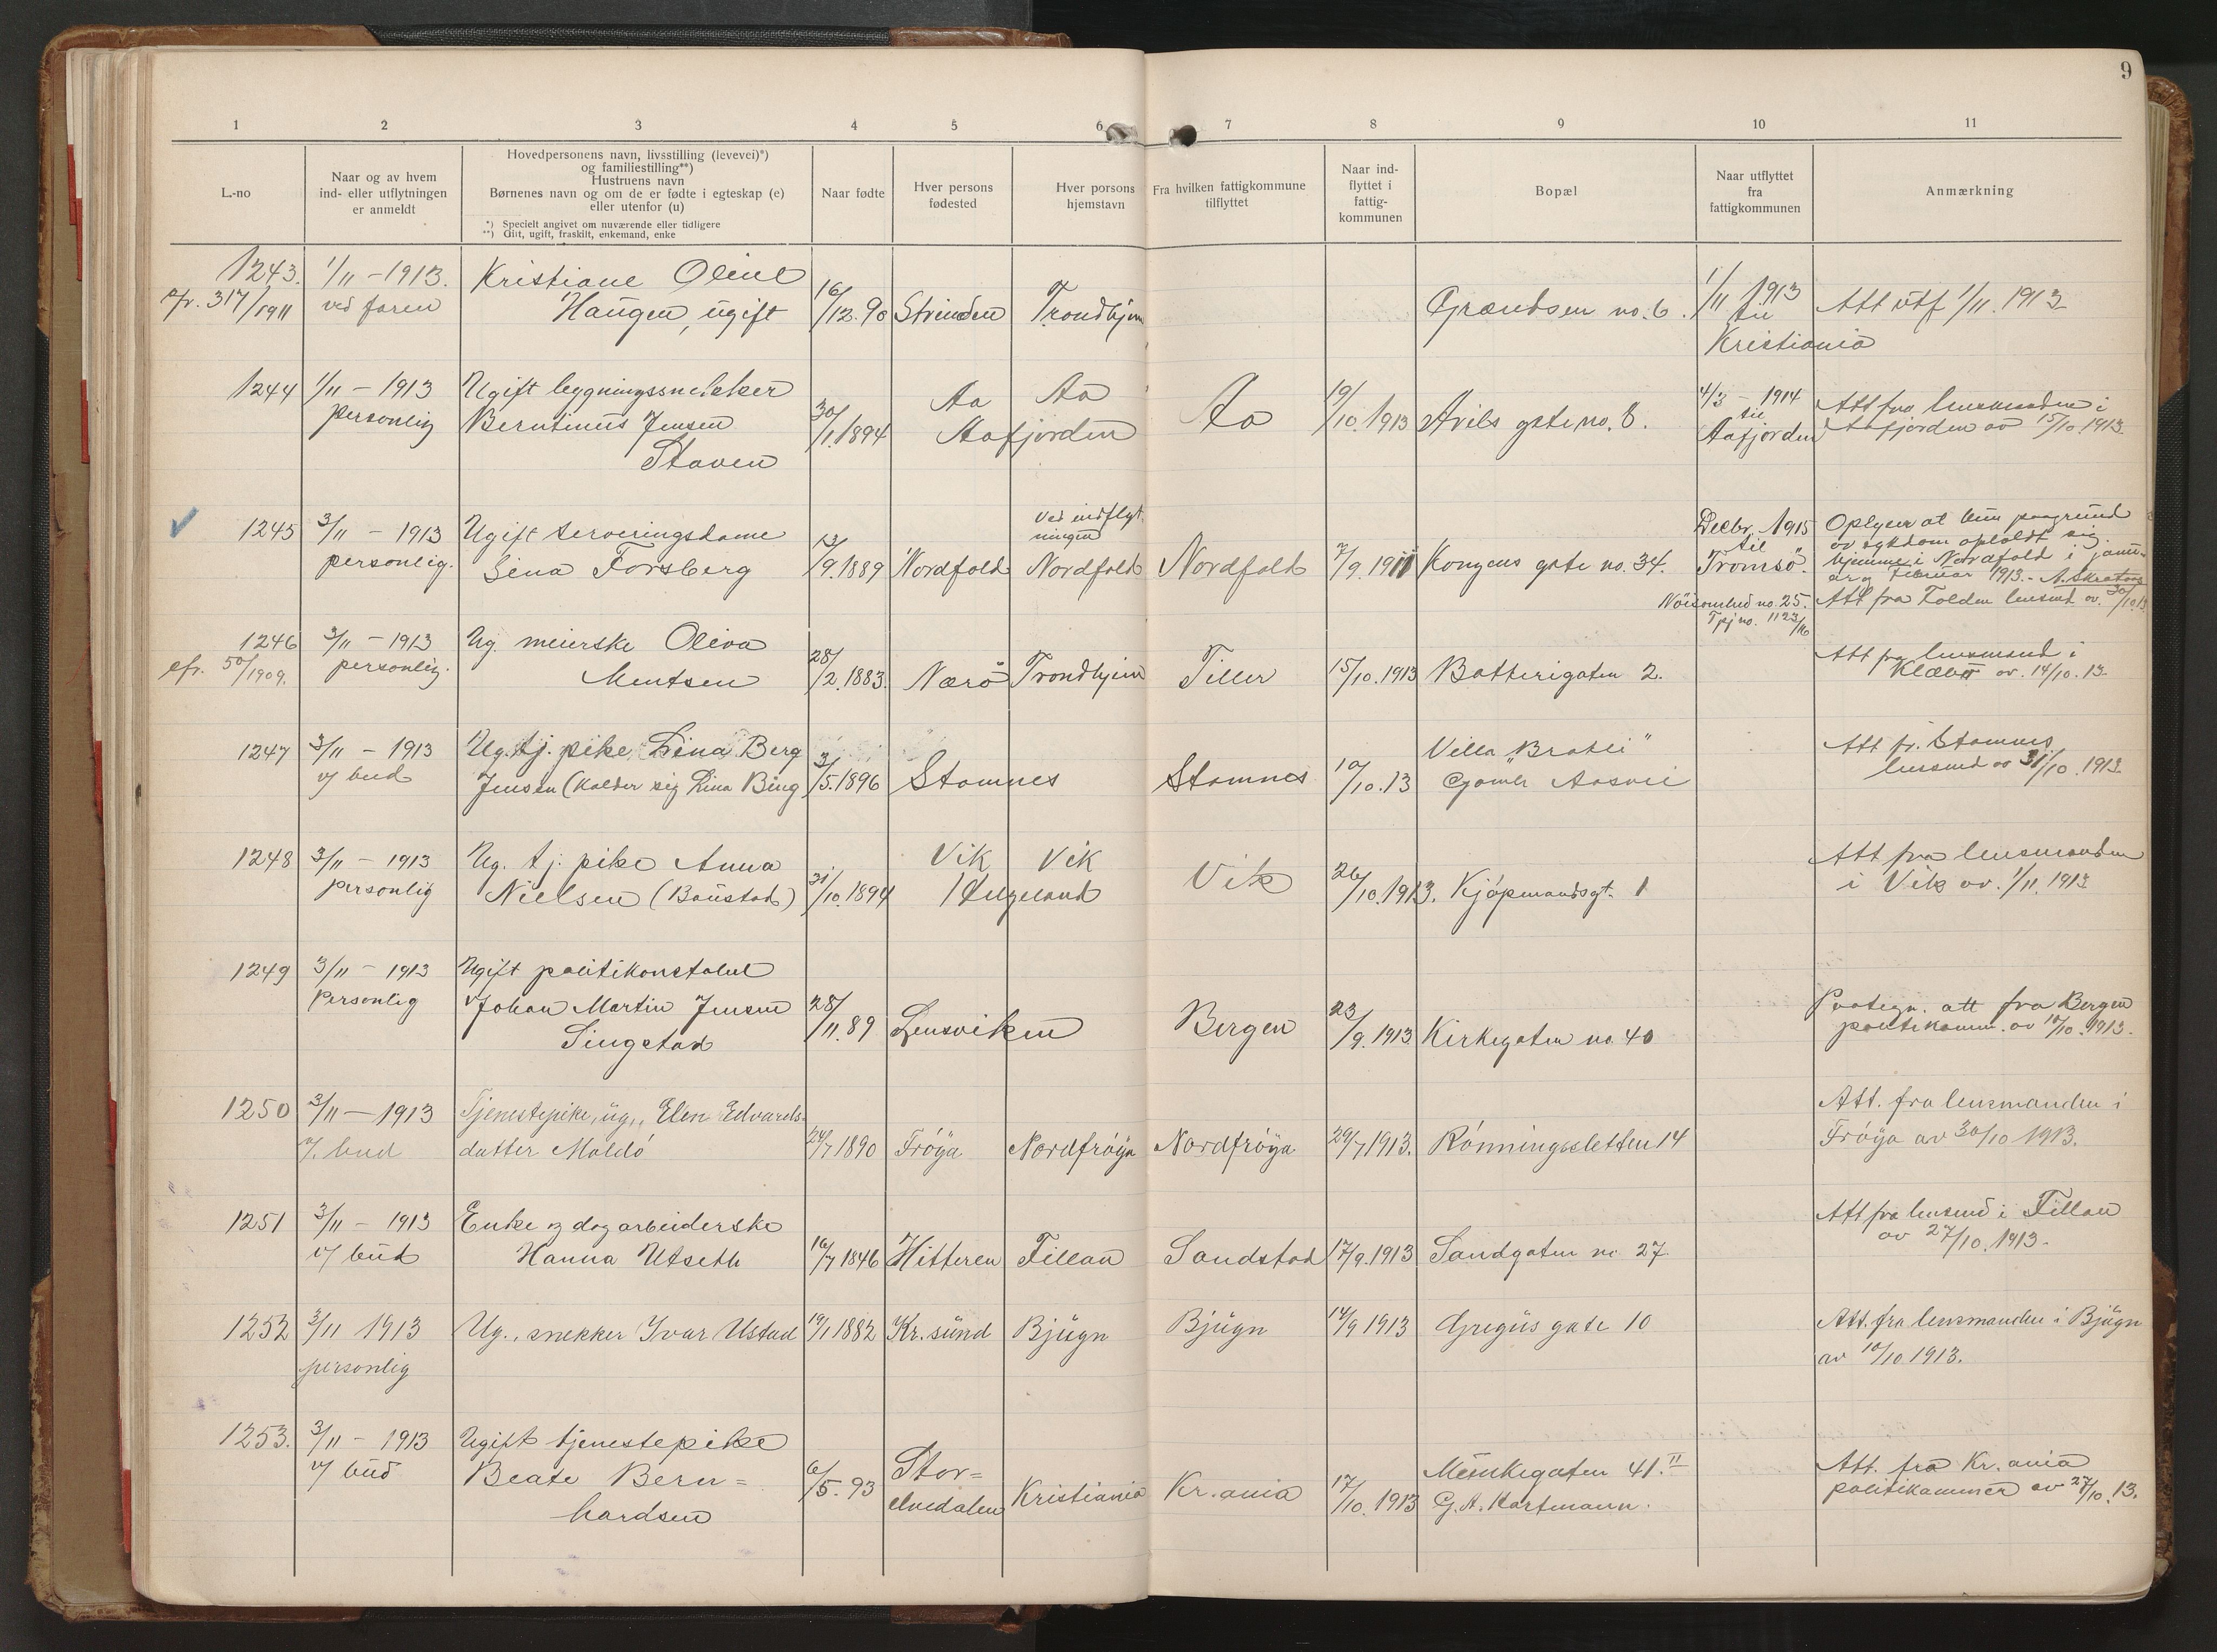 9
1 2 3 4 5 6 7 8 9 10 11
L.-no
Naar og av hvem
ind- eller utflytningen
er anmeldt
Hovedpersonens navn, livsstilling (levevei)*)
og familiestilling**)
Hustruens navn
Børnenes navn og om de er fødte i egteskap (e)
eller utenfor (u)
*) Specielt angivet om nuværende eller tidligere
**) Gift, ugift, fraskilt, enkemand, enke
Naar fødte
Hver persons
fødested
Hver persons
hjemstavn
Fra hvilken fattigkommune
tilflyttet
Naar ind-
flyttet i
fattig-
kommunen
Bopæl
Naar utflyttet
fra
fattigkommunen
Anmærkning
1243. 1/11 - 1913. Kristiane Oline
cfr. 317/1911 ved faren Haugen, ugift 16/12.90 Strinden Trondhjem Grændsen no. 6. 1/11 1913 Att utf 1/11. 1913
til
Kristiania
1244 1/11 - 1913 Ugift bygningssnekker Aa Aa 4/3 - 1914 Att fra lensmanden i
personlig Berntinus Jensen 30/1.1894 Aafjorden Aa 19/10.1913 Arilds gate no. 8. til Aafjorden av 15/10.1913.
Staven Aafjorden
Ved indflyt-
ningen
1245 3/11 - 1913 Ugift serveringsdame Decbr. 1915 Oplyser at hun paagrund
personlig. Lina Forsberg 13/9.1889 Nordfold Nordfold Nordfold 7/9.1911 Kongens gate no. 34. til av sykdom opholdt sig
Tromsö. hjemme i Nordfold i janu-
ar og februar 1913. -
Nöisomhed no. 25. Att fra Folden lensmd av. 30/10.13
Tpj no. 1123/16
1246 3/11 - 1913 Ug. meierske Oliva Att fra lensmand i
cfr. 50/1909. personlig. Mentsen 28/2.1883. Nærö Trondhjem Tiller 15/10.1913 Batterigaten 2. Klæbu av. 14/10.13.
1247 3/11 - 1913 Ug. tj. pike Lina Berg Villa "Brakli" Att fr. Stamnes
v/ bud Jensen (kalder sig Lina Bing 3/5.1896 Stamnes Stamnes 10/10.13 Gamle Aasvei lensmd av 31/10.1913.
1248 3/11 - 1913 Ug. tj. pike Anna Vik Vik Att fra lensmanden
personlig Nielsen (Baustad) 31/10.1894 Helgeland Vik 26/10.1913. Kjöpmandsgt. 1 i Vik av. 1/11.1913
1249 3/11 - 1913 Ugift politikonstabel
Personlig Johan Martin Jensen 28/11.89 Lensviken Bergen 23/9.1913 Kirkegaten no 40 Paategn. att fra Bergen
Singstad politikamm. av 10/10.1913.
1250 3/11 - 1913 Tjenestepike, ug., Elen Edvards- Att. fra lensmanden i
v/. bud datter Moldö 24/7 1890 Fröya Nordfröya Nordfröya 29/7 1913. Rönningsletten 14 Fröya av 30/10 1913.
1251 3/11 - 1913 Enke og dagarbeiderske Att fra lensmd i Fillan
v/ bud Hanna Utseth 16/7 1846 Hitteren Fillan Sandstad 17/9.1913 Sandgaten no 27 av 27/10.1913.
1252 3/11 1913 Ug., snekker Ivar Ustad 19/1 1882 Kr.sund Bjugn Bjugn 14/9 1913 Gregus gate 10 Att. fra lensmanden i Bjugn
personlig av 10/10 1913.
1253. 3/11 - 1913 Ugift tjenestepike Stor- Munkegaten 41. II Att. fra Kr.ania
v/ bud Beate Bern= 6/5.93 elvedalen Kristiania Kr.ania 17/10.1913 G. A. Hartmann. politikammer av 27/10.13.
hardsen